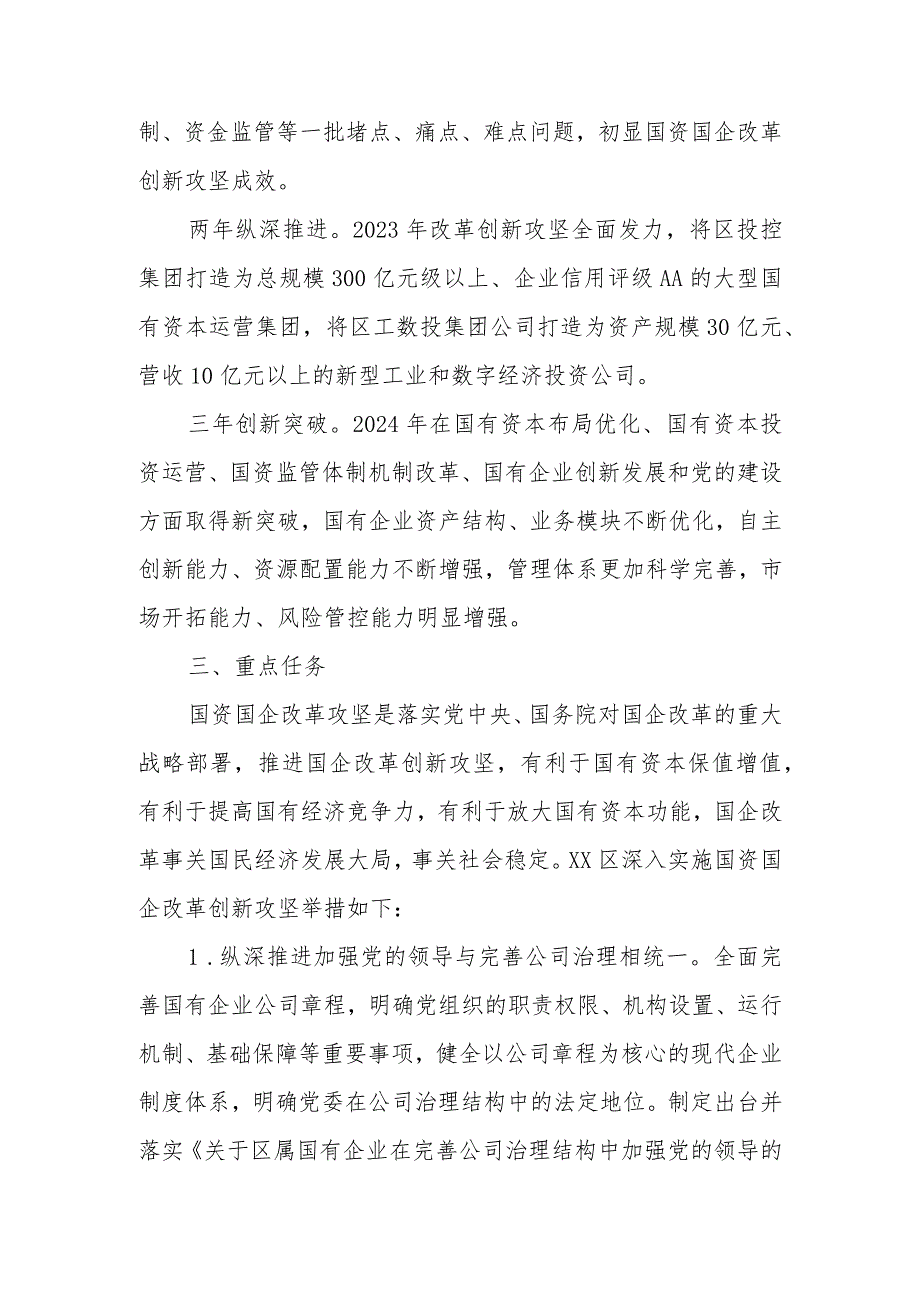 制、资金监管等一批堵点、痛点、难点问题，初显国资国企改革
创新攻坚成效。
两年纵深推进。2023 年改革创新攻坚全面发力，将区投控
集团打造为总规模 300 亿元级以上、企业信用评级 AA 的大型国
有资本运营集团，将区工数投集团公司打造为资产规模 30 亿元、
营收 10 亿元以上的新型工业和数字经济投资公司。
三年创新突破。2024 年在国有资本布局优化、国有资本投
资运营、国资监管体制机制改革、国有企业创新发展和党的建设
方面取得新突破，国有企业资产结构、业务模块不断优化，自主
创新能力、资源配置能力不断增强，管理体系更加科学完善，市
场开拓能力、风险管控能力明显增强。
三、重点任务
国资国企改革攻坚是落实党中央、国务院对国企改革的重大
战略部署，推进国企改革创新攻坚，有利于国有资本保值增值，
有利于提高国有经济竞争力，有利于放大国有资本功能，国企改
革事关国民经济发展大局，事关社会稳定。XX 区深入实施国资国
企改革创新攻坚举措如下：
1 .纵深推进加强党的领导与完善公司治理相统一。全面完
善国有企业公司章程，明确党组织的职责权限、机构设置、运行
机制、基础保障等重要事项，健全以公司章程为核心的现代企业
制度体系，明确党委在公司治理结构中的法定地位。制定出台并
落实《关于区属国有企业在完善公司治理结构中加强党的领导的